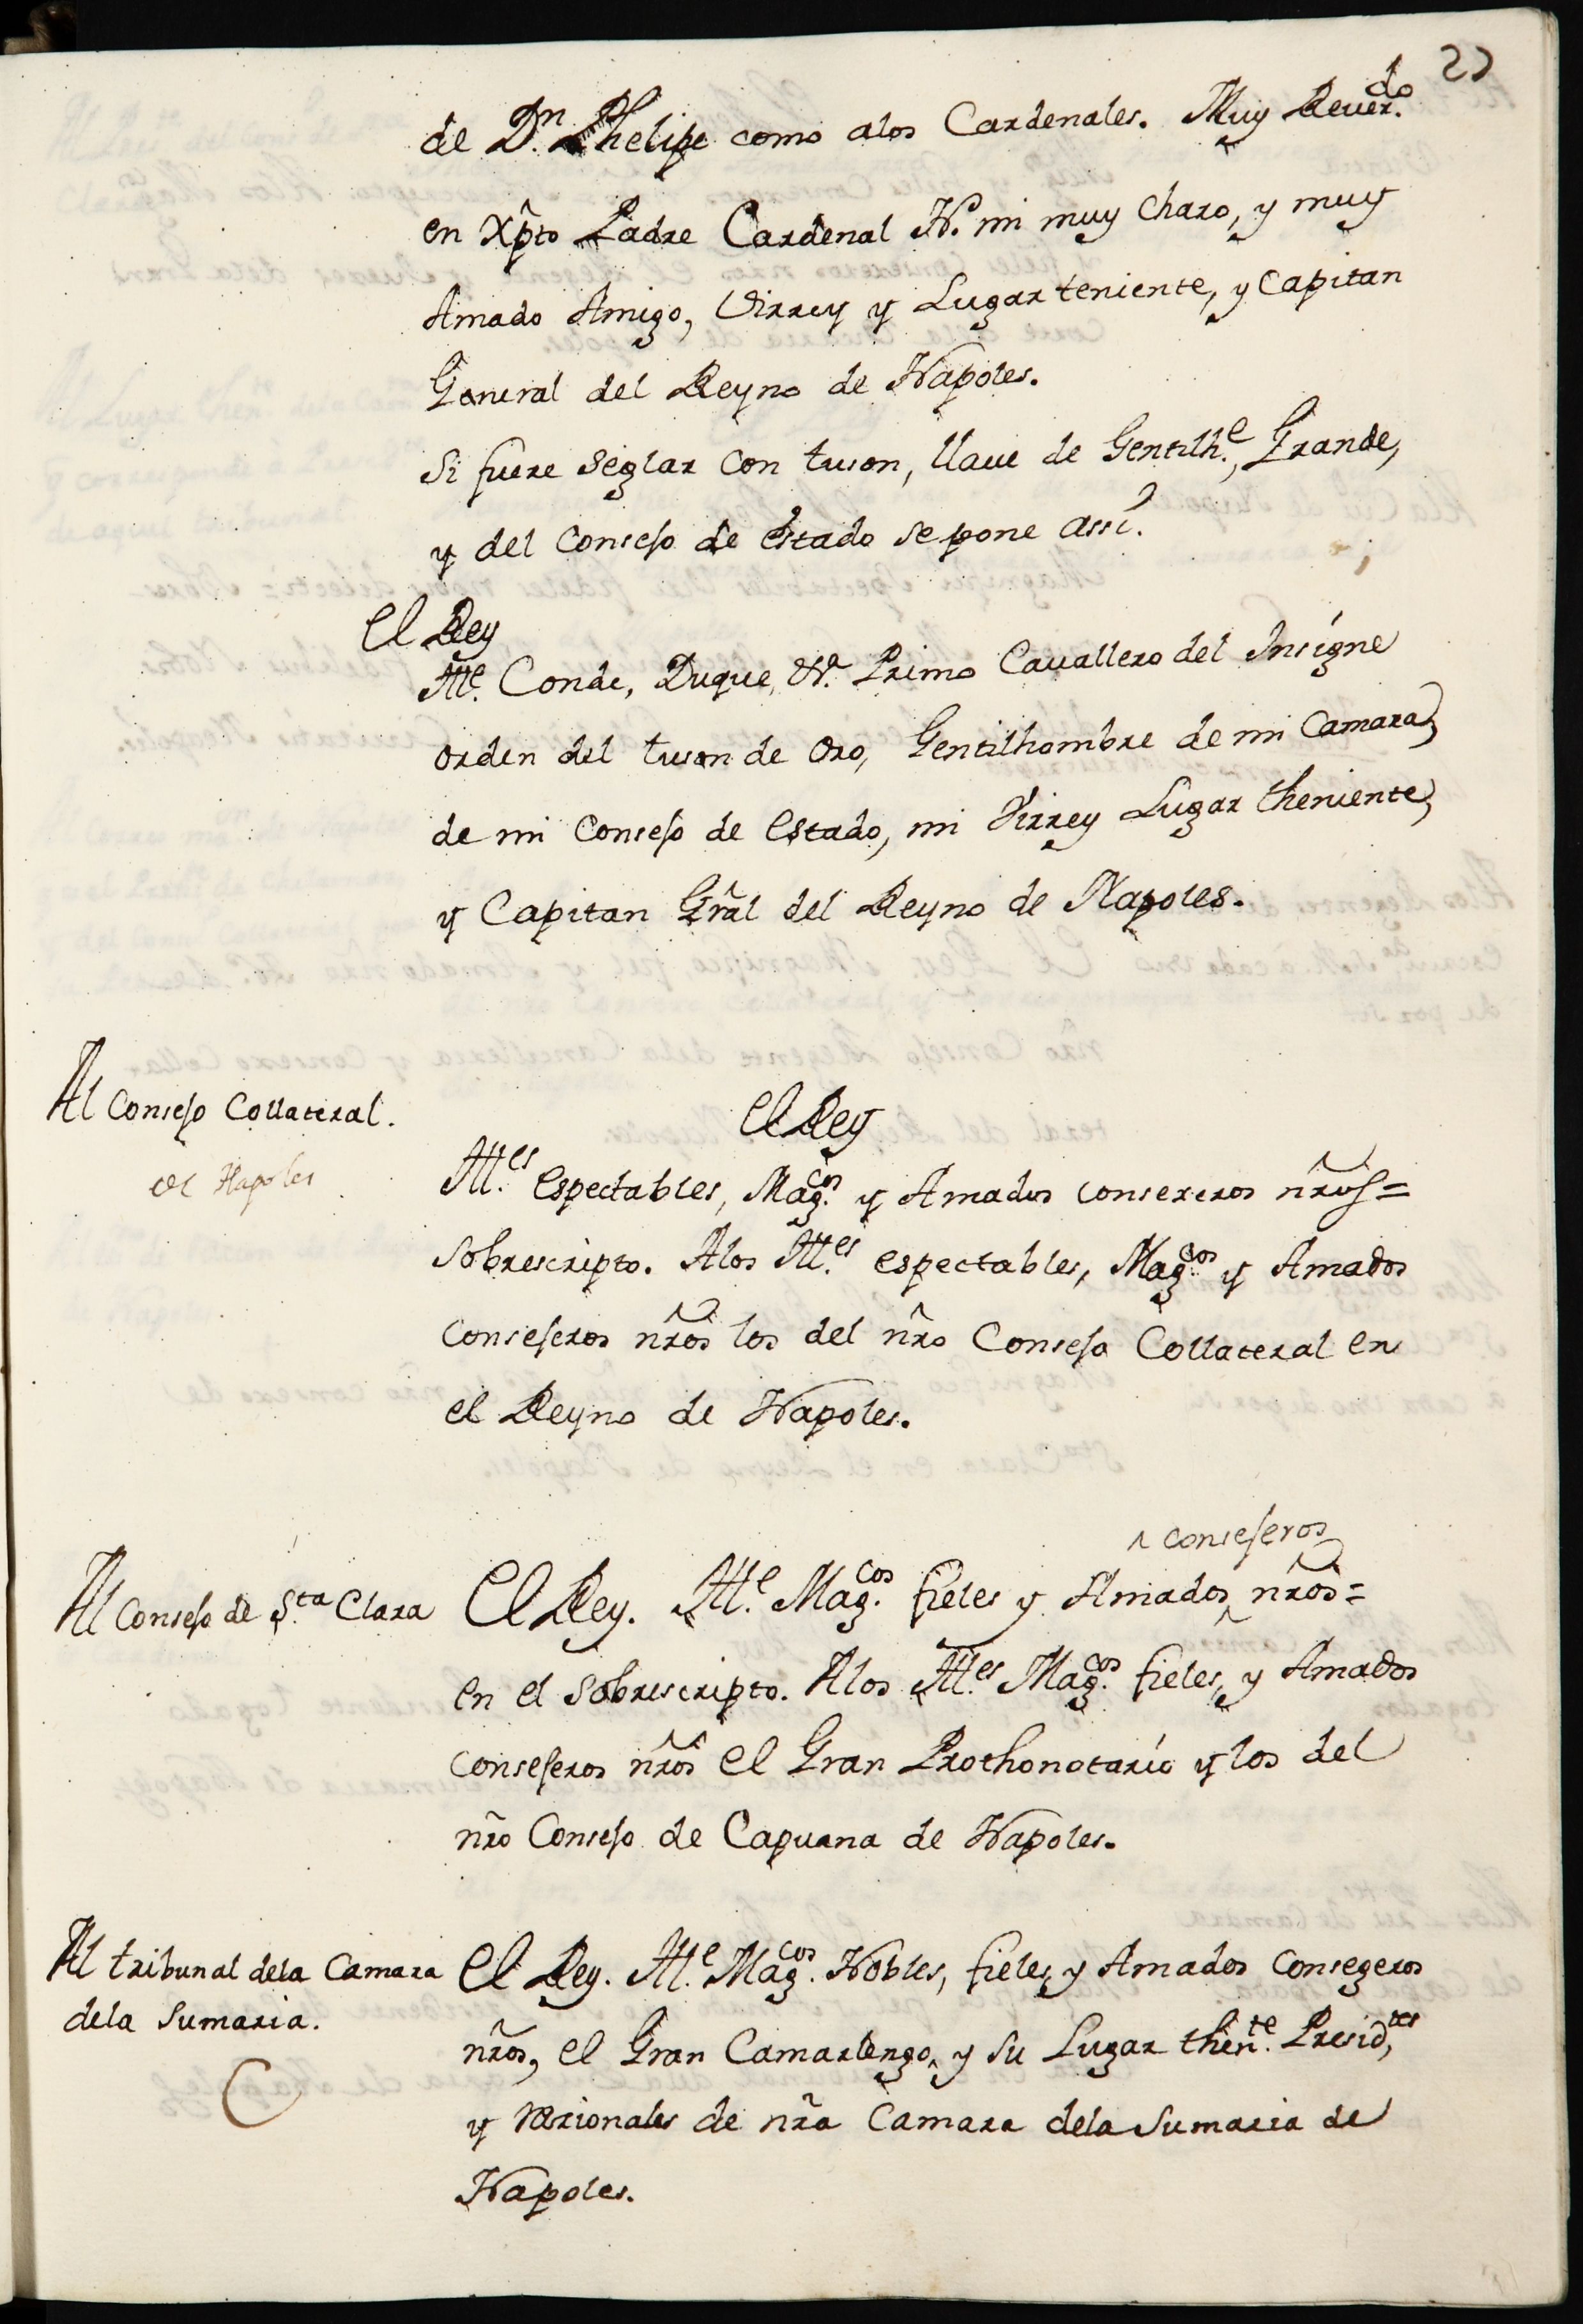 22
de D.n Phelipe como alos Cardenales. Muy Reuer.do
en Xpto Padre Cardenal N. mi muy Charo, y muy
Amado Amigo, Virrey y Lugar teniente, y Capitan
General del Reyno de Napoles.
Si fuere Seglar con tuson, llaue de Gentilh.e, Grande,
y del Consejo de estado se pone assi.
El Rey
Ill.e Conde, Duque, N. Primo Cauallero del Insigne
orden del tuson de Oro, Gentilhombre de mi Camara,
de mi Consejo de Estado, mi Virrey Lugar theniente,
y Capitan Grãl del Reyno de Napoles.
Al Consejo Collateral.
de Napoles
El Rey
Ill.es espectables, Mag.cos y Amados consexeros nr̃os=
Sobrescripto. Alos Ill.es espectables, Mag.cos y Amados
consejeros nr̃os los del nr̃o Consejo Collateral en
el Reyno de Napoles.
Al Consejo de S.ta Clara
^ consejeros
El Rey. Ill.e Mag.cos fieles y Amados ^ nr̃os=
en el sobrescripto. Alos Ill.es Mag.cos fieles, y Amados
consejeros nr̃os el Gran Prothonotario y los del
nr̃o Consejo de Capuana de Napoles.
Al tribunal dela Camara
dela Sumaria.
El Rey. Ill.e Mag.cos Nobles, fieles, y Amados Consegeros
nr̃os, el Gran Camarlengo, y su Lugar then.te Presid.tes,
y racionales de nr̃a Camara dela Sumaria de
Napoles.